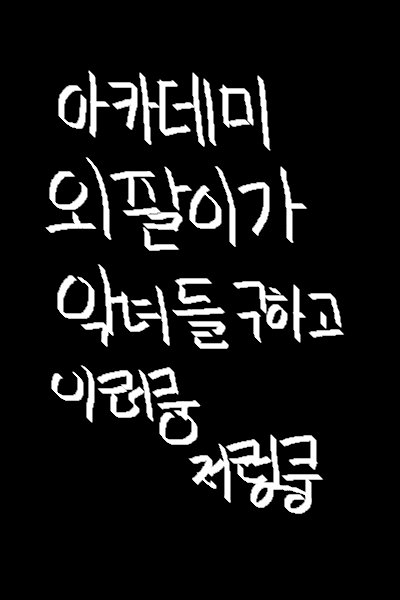 아카데미
외팔이가
악녀들 구하고
이러쿵
저러쿵